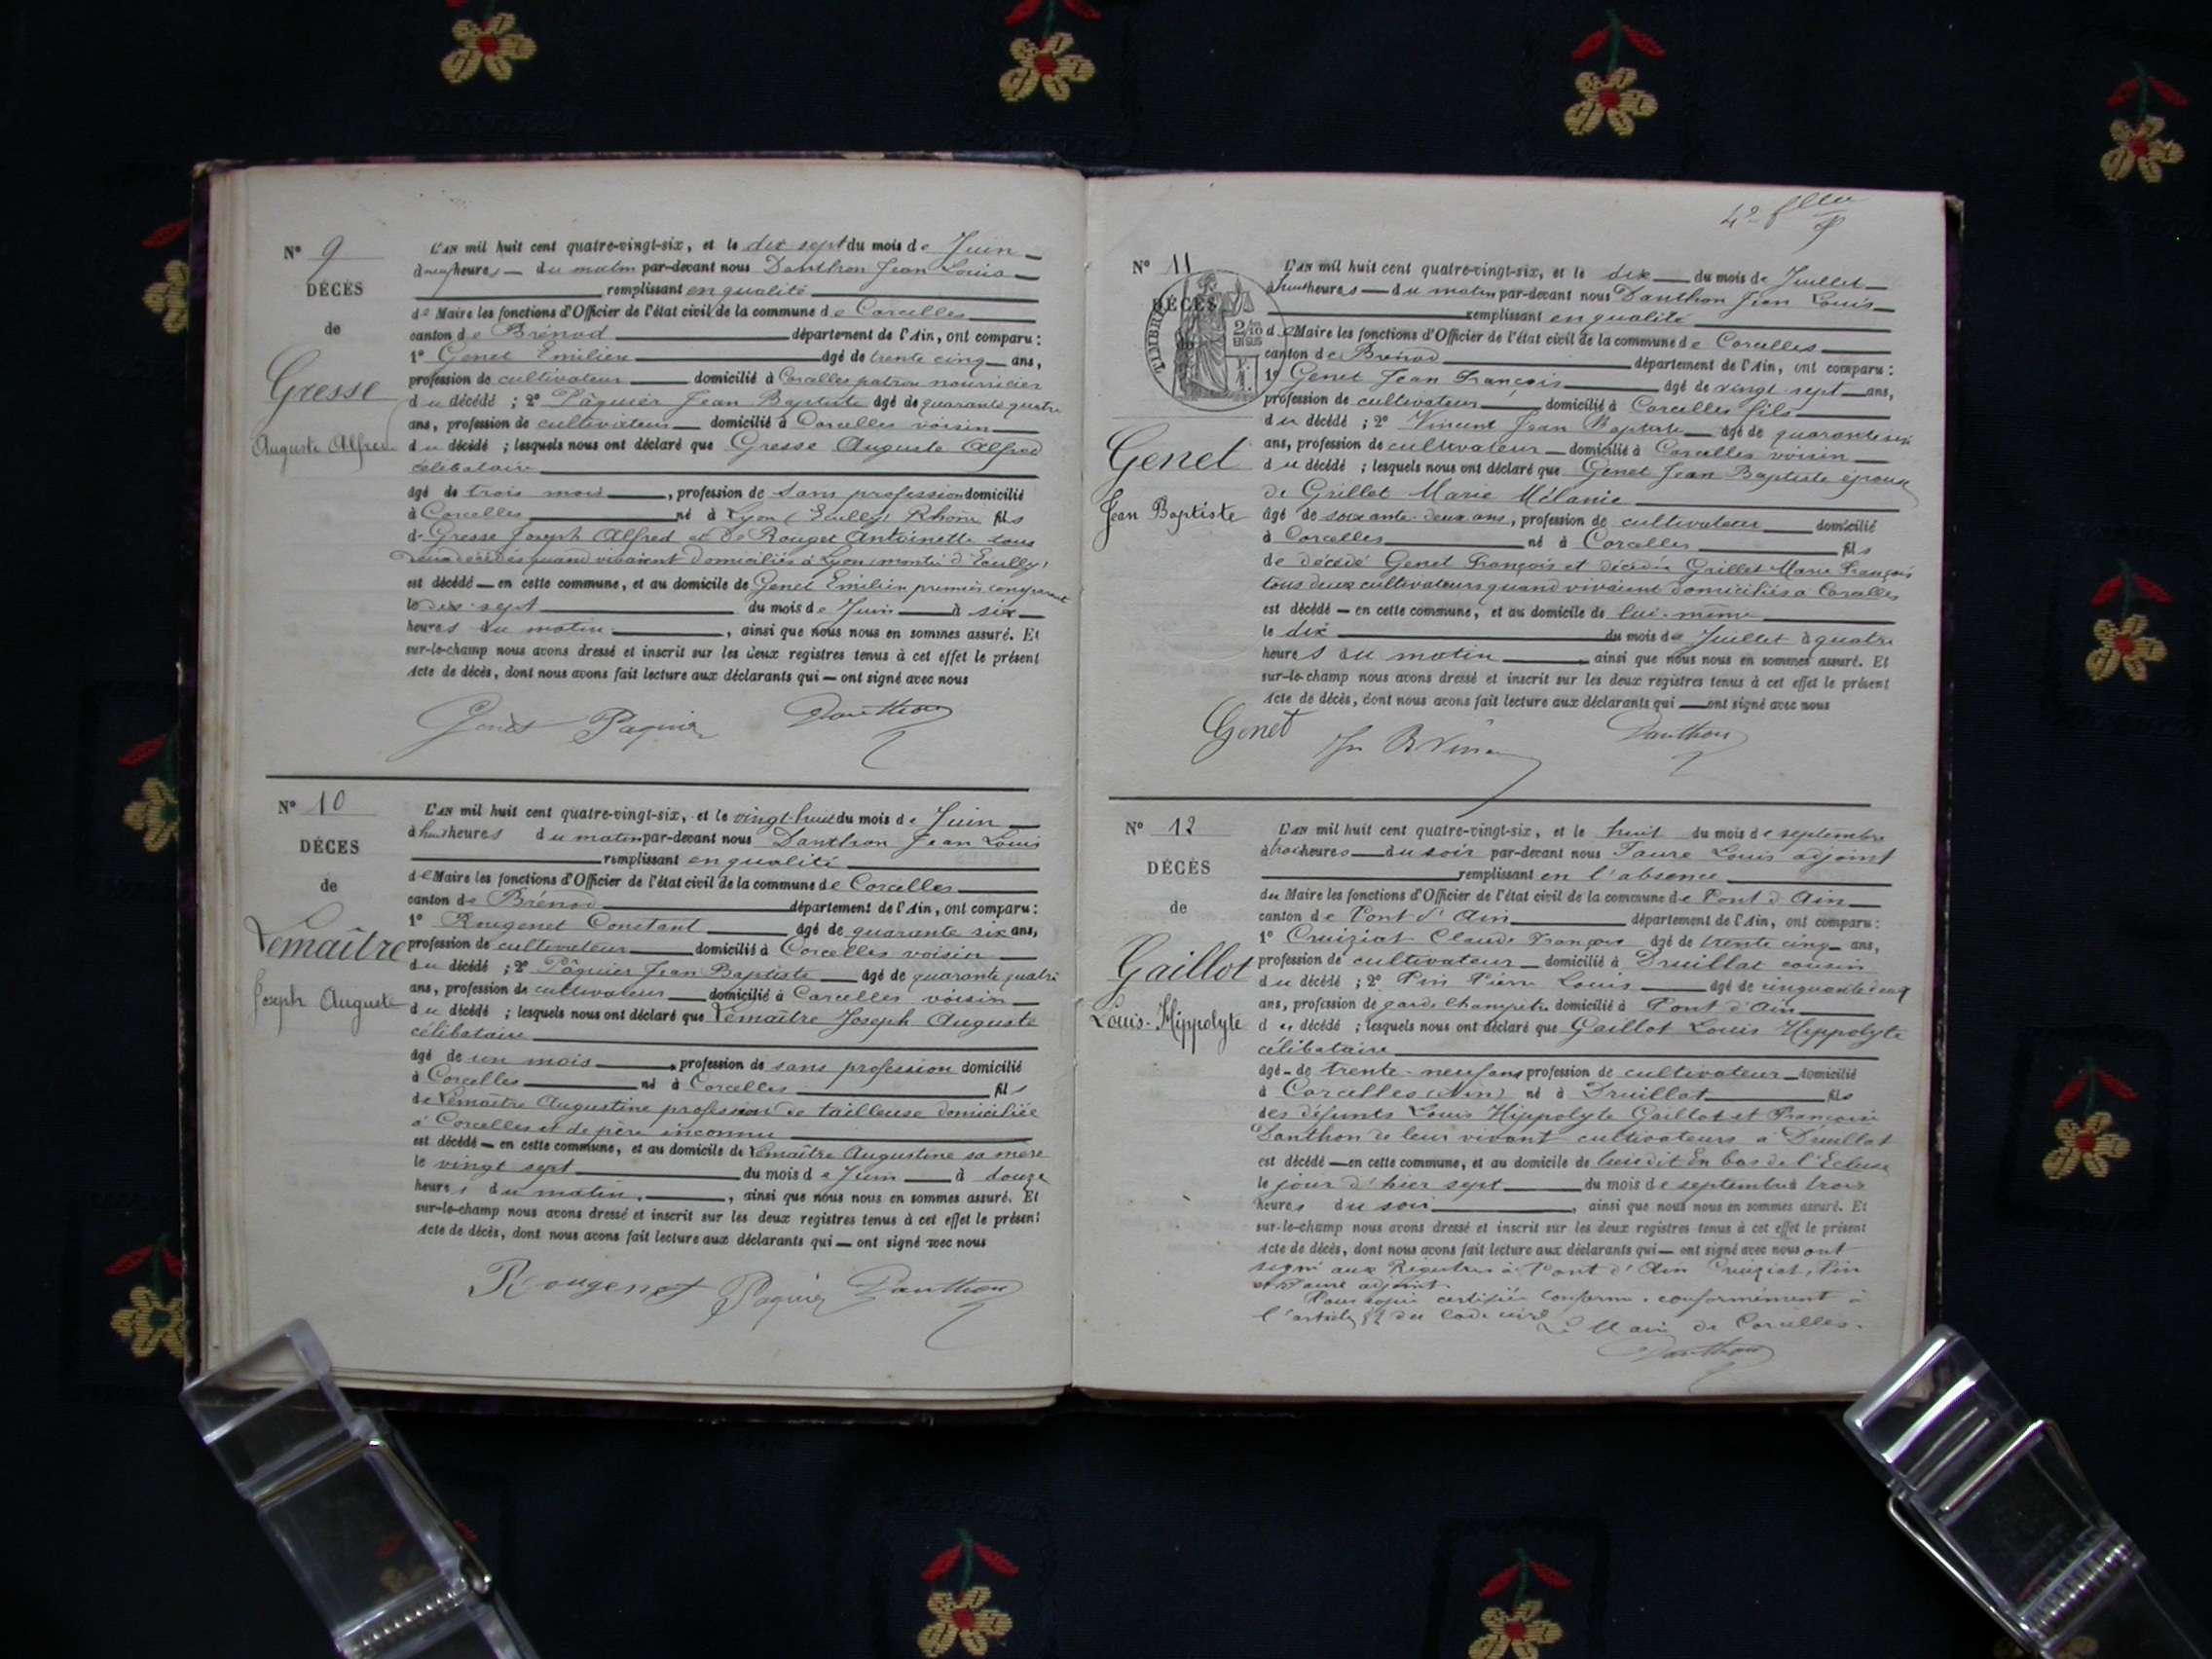 N° 9
DÉCÈS
de
Gresse
Auguste Alfred
L'AN mil huit cent quatre-vingt-six, et le dix sept du mois de Juin
heures du matin par-devant nous Danthon Jean Louis
remplissant en qualité
de Maire les fonctions d'Officier de l'état civil de la commune de Corcelles
canton de Brénod département de l'Ain, ont comparu :
1° Genet Emilien âgé de trente cinq ans,
profession de cultivateur domicilié à Corcelles patron nourricier
du décédé ; 2° Pâquier Jean Baptiste âgé de quarante quatre
ans, profession de cultivateur domicilié à Corcelles voisin
du décédé ; lesquels nous ont déclaré que Gresse Auguste Alfred
célibataire
âgé de trois mois, profession de sans profession domicilié
à Corcelles né à Lyon (Ecully) Rhône fils
de Gresse Joseph Alfred et de Rouget Antoinette tous
deux décédés quand vivaient domiciliés à Lyon montée d'Ecully,
est décédé en cette commune, et au domicile de Genet Emilien premier comparant
le dix-sept du mois de Juin à six
heures du matin, ainsi que nous nous en sommes assuré. Et
sur-le-champ nous avons dressé et inscrit sur les deux registres tenus à cet effet le présent
Acte de décès, dont nous avons fait lecture aux déclarants qui ont signé avec nous
Genet Paquier Danthon
N° 10
DÉCES
de
Lemaître
Joseph Auguste
L'AN mil huit cent quatre-vingt-six, et le vingt-huit du mois de Juin
à huit heures du matin par-devant nous Danthon Jean Louis
remplissant en qualité
de Maire les fonctions d'Officier de l'état civil de la commune de Corcelles
canton de Brénod département de l'Ain, ont comparu :
1° Rougenet Constant âgé de quarante six ans,
profession de cultivateur domicilié à Corcelles voisin
du décédé ; 2° Pâquier Jean Baptiste âgé de quarante quatre
ans, profession de cultivateur domicilié à Corcelles voisin
du décédé ; lesquels nous ont déclaré que Lemaître Joseph Auguste
célibataire
âgé de un mois, profession de sans profession domicilié
à Corcelles né à Corcelles fils
de Lemaître Augustine profession de tailleuse domiciliée
à Corcelles et de père inconnu
est décédé en cette commune, et au domicile de Lemaître Augustine sa mère
le vingt sept du mois de Juin à douze
heures du matin, ainsi que nous nous en sommes assuré. Et
sur-le-champ nous avons dressé et inscrit sur les deux registres tenus à cet effet le présent
Acte de décès, dont nous avons fait lecture aux déclarants qui ont signé avec nous
Rougenet Paquier Danthon
N° 11
DÉCÈS
TIMBRE
2/10 EN SUS
Genet
Jean Baptiste
L'AN mil huit cent quatre-vingt-six, et le dix du mois de Juillet
à huit heures du matin par-devant nous Danthon Jean Louis
remplissant en qualité
de Maire les fonctions d'Officier de l'état civil de la commune de Corcelles
canton de Brénod département de l'Ain, ont comparu :
1° Genet Jean François âgé de vingt sept ans,
profession de cultivateur domicilié à Corcelles fils
du décédé ; 2° Vincent Jean Baptiste âgé de quarante six
ans, profession de cultivateur domicilié à Corcelles voisin
du décédé ; lesquels nous ont déclaré que Genet Jean Baptiste époux
de Grillet Marie Mélanie
âgé de soixante-deux ans, profession de cultivateur domicilié
à Corcelles né à Corcelles fils
de décédé Genet François et décédée Grillet Marie Françoise
tous deux cultivateurs quand vivaient domiciliés à Corcelles
est décédé en cette commune, et au domicile de lui-même
le dix du mois de Juillet à quatre
heures du matin ainsi que nous nous en sommes assuré. Et
sur-le-champ nous avons dressé et inscrit sur les deux registres tenus à cet effet le présent
Acte de décès, dont nous avons fait lecture aux déclarants qui ont signé avec nous
Genet Danthon
N° 12
DÉCÈS
de
Gaillot
Louis-Hippolyte
L'AN mil huit cent quatre-vingt-six, et le huit du mois de septembre
à trois heures du soir par-devant nous Faure Louis adjoint
remplissant en l'absence
du Maire les fonctions d'Officier de l'état civil de la commune de Pont d'Ain
canton de Pont d'Ain département de l'Ain, ont comparu :
1° Cruiziat Claude François âgé de trente cinq ans,
profession de cultivateur domicilié à Druillat cousin
du décédé ; 2° Pin Pierre Louis âgé de cinquante deux
ans, profession de garde champêtre domicilié à Pont d'Ain
du décédé ; lesquels nous ont déclaré que Gaillot Louis Hippolyte
célibataire
âgé de trente-neuf ans profession de cultivateur domicilié
à Corcelles (Ain) né à Druillat fils
des défunts Louis Hippolyte Gaillot et Françoise
Danthon de leur vivant cultivateurs à Druillat
est décédé en cette commune, et au domicile de lieu dit En bas de l'Ecluse
le jour d'hier sept du mois de septembre à trois
heures du soir, ainsi que nous nous en sommes assuré. Et
sur-le-champ nous avons dressé et inscrit sur les deux registres tenus à cet effet le présent
Acte de décès, dont nous avons fait lecture aux déclarants qui ont signé avec nous ont
signé aux Registres à Pont d'Ain Cruiziat, Pin
et Faure adjoint.
Pour copie certifiée conforme conformément à
l'article 82 du Code civil
Le Maire de Corcelles.
Danthon